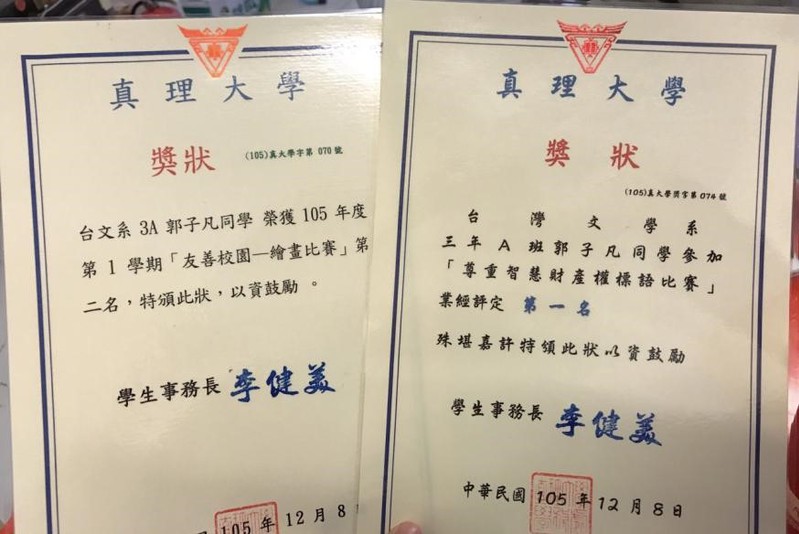 真理大學
獎狀
(105)真大學字第 070 號
台文系 3A 郭子凡同學 榮獲 105 年度
第 1 學期「友善校園—繪畫比賽」第
二名，特頒此狀，以資鼓勵 。
學生事務長 李健美
105 年 12 月 8
真理大學
獎狀
(105)真大學獎字第 074 號
台灣文學系
三年 A 班郭子凡同學參加
「尊重智慧財產權標語比賽」
業經評定 第一名
殊堪嘉許特頒此狀以資鼓勵
學生事務長 李健美
中華民國 105 年 12 月 8 日